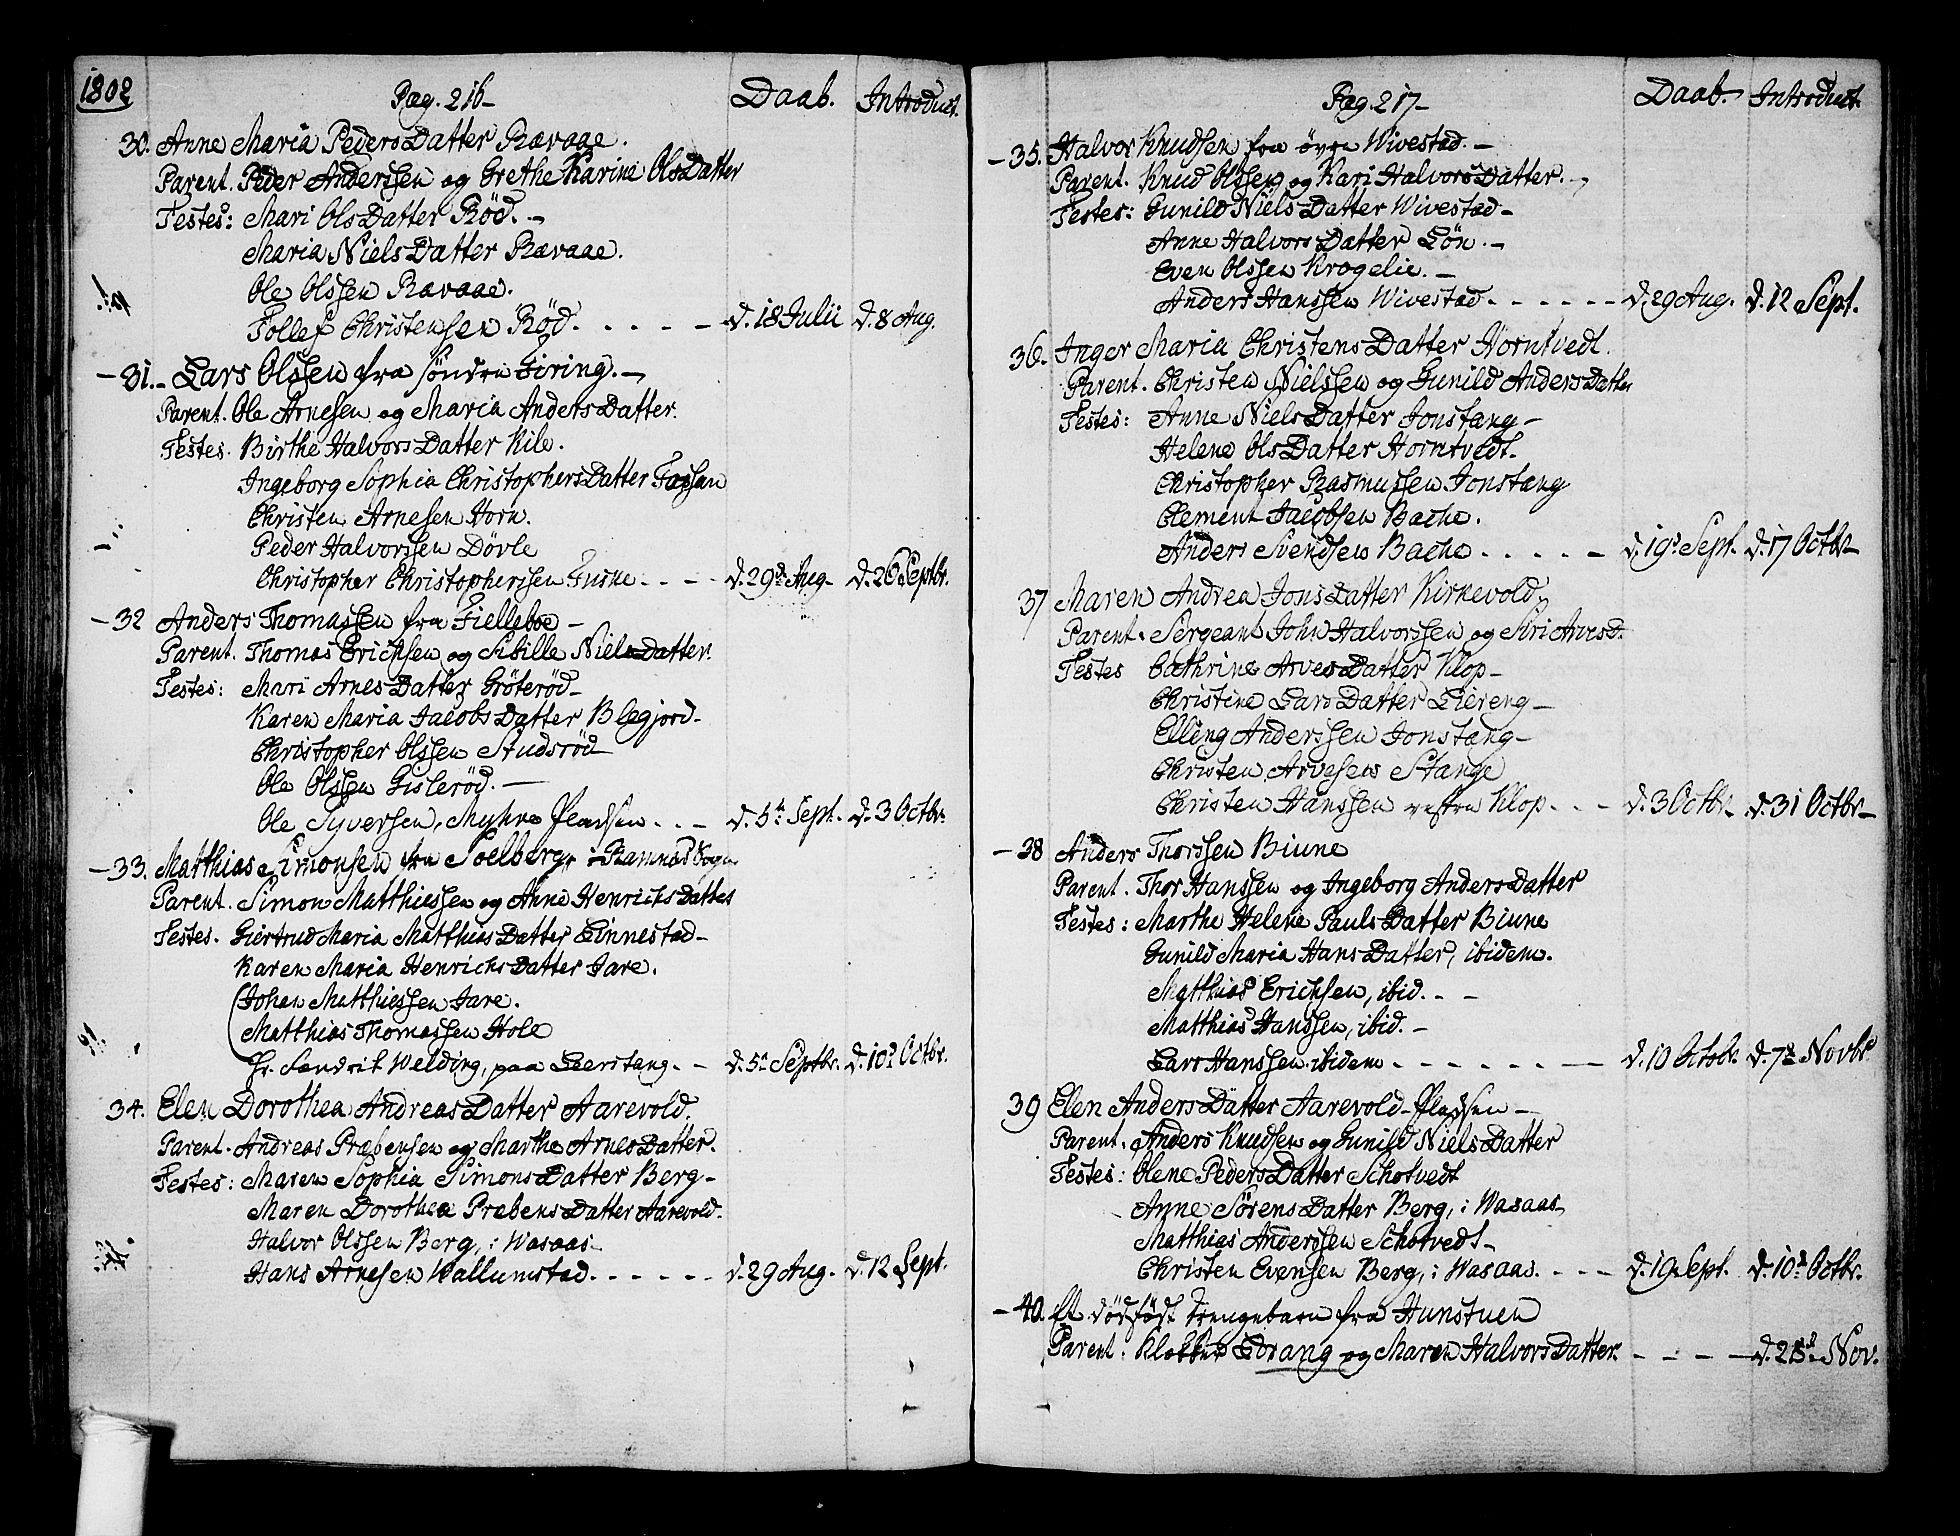 1802
Pag. 216-
Daab.
Introduct.
30. Anne Maria PedersDatter Rævaae.
Parent. Peder Anderssen og Grethe Karine OlsDatter
Testes: Mari OlsDatter Röd. -
Maria NielsDatter Rævaae.
Ole Olssen Rævaae.
Tollef Christensen Röd. - - - - - d. 18 Julii d. 8 Aug.
- 31. - Lars Olssen fra Söndre Giring. -
Parent. Ole Arnesen og Maria AndersDatter.
Testes. Birthe HalvorsDatter Kile.
Ingeborg Sophia ChristophersDatter Fossan
Christen Arnesen Horn.
Peder Halvorssen Dövle
Christopher Christopherssen Fuske - - - - d. 29d Aug. d. 26 Septbr.
- 32 Anders Thomassen fra Fielleboe -
Parent. Thomas Erichsen og Sibille NielsDatter.
Testes: Mari ArnesDatter Gröteröd -
Karen Maria JacobsDatter Blegjord -
Christopher Olssen Studsröd
Ole Olssen Gisleröd. -
Ole Syversen, Myhre Pladsen - - - d. 5te Sept. d. 3 Octbr.
- 33. Matthias Simonsen fra Soelberg, i Ramnæs Sogn
Parent. Simon Matthiessen og Anne HenrichsDatter
Testes. Giertrud Maria MatthiasDatter Linnestad -
Karen Maria HenrichsDatter Jare.
Johan Matthiessen Jare.
Matthias Thomassen Hole
Hr. Welding, paa Leerstang - - d. 5te Septbr. d. 10d Octbr.
34. Elen Dorothea AndreasDatter Aarevold.
Parent. Andreas Præbensen og Marthe ArnesDatter.
Testes: Maren Sophia SimonsDatter Berg -
Maren Dorothea PræbensDatter Aarevold.
Halvor Olssen Berg, i Wasaas -
Hans Arnesen Wallumstad - - - - - - d. 29 Aug. d. 12 Sept.
Pag. 217-
Daab.
Introduct.
- 35. Halvor Knudsen fra övre Wivestad. -
Parent. Knud Olssen og Kari HalvorsDatter. -
Testes: Gunild NielsDatter Wivestad -
Anne HalvorsDatter Lön. -
Even Olssen Krogelie. -
Anders Hanssen Wivestad - - - - - - d. 29 Aug. d. 12 Sept.
36. Inger Maria ChristensDatter Horntvedt.
Parent. Christen Nielssen og Gunild AndersDatter
Testes: Anne NielsDatter Jonstang -
Helene OlsDatter Horntvedt.
Christopher Rasmussen Jonstang
Clement Jacobsen Bache.
Anders Svendsen Bache - - - - - d. 19d Sept. d. 17 Octbr.
37 Maren Andrea JonsDatter Kirkevold,
Parent. Sergeant John Halvorssen og Siri Arvesd.
Testes Cathrine ArvesDatter Klop -
Christine LarsDatter Liereng -
Elling Anderssen Jonstang -
Christen Arvesen Stange
Christen Hanssen vestre Klop - - - d. 3 Octbr. d. 31 Octbr.
- 38 Anders Thorssen Biune
Parent. Thor Hanssen og Ingeborg AndersDatter
Testes: Marthe Helene PaulsDatter Biune
Gunild Maria HansDatter, ibidem.
Matthias Erichsen, ibid. - -
Matthias Hanssen, ibid. -
Lars Hanssen ibidem - - - - - - - d. 10 Octobr. d. 7de Novbr
39 Elen AndersDatter Aarevold-Pladsen -
Parent. Anders Knudsen og Gunild NielsDatter
Testes: Olene PedersDatter Schotvedt
Anne SörensDatter Berg, i Wasaas
Matthias Anderssen Schotvedt -
Christen Evensen Berg, i Wasaas. - - - d. 19 Sept. d. 10d Octbr.
- 40. Et dödfödt Drengebarn fra Hunstuen
Parent. Klokker Lorang og Maren HalvorsDatter. - - - - d. 21d Nov.